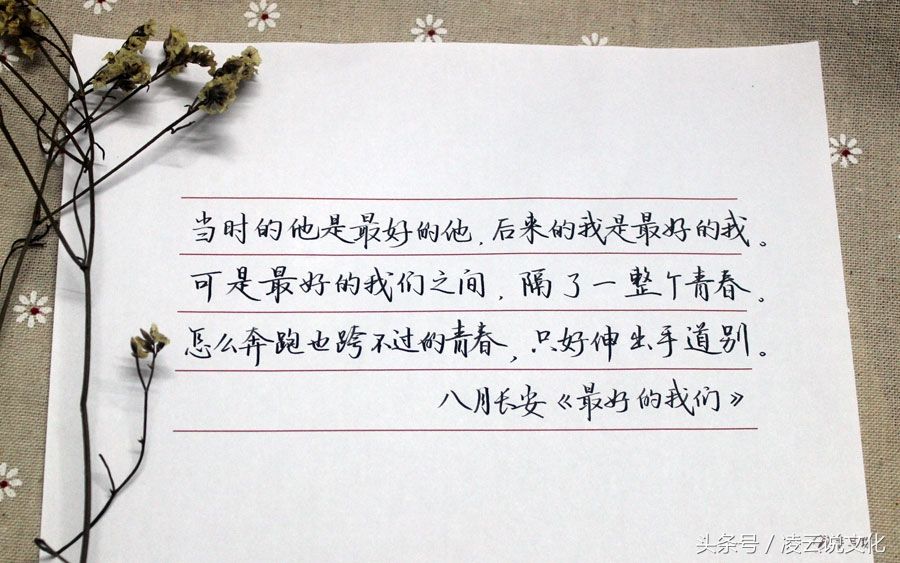 当时的他是最好的他,后来的我是最好的我。
可是最好的我们之间,隔了一整个青春。
怎么奔跑也跨不过的青春,只好伸出手道别。
八月长安《最好的我们》
头条号/凌云说文化